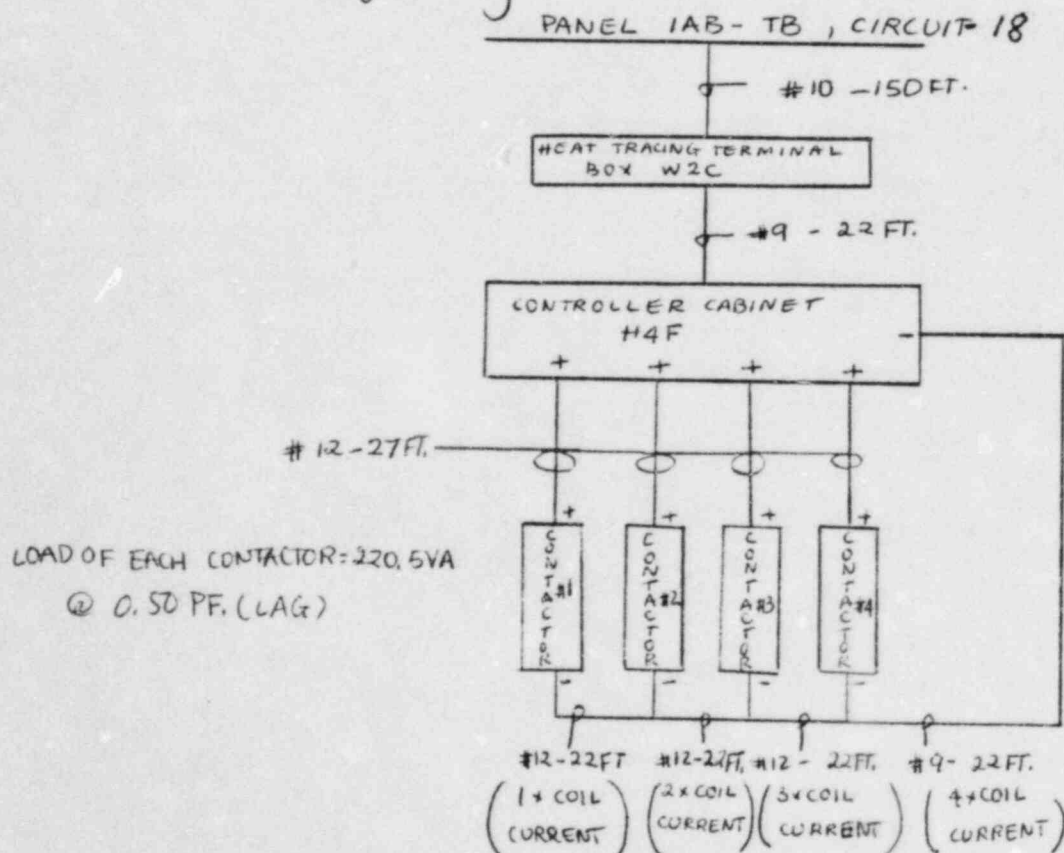 PANEL 1AB-TB, CIRCUIT 18
#10 - 150 FT.
HEAT TRACING TERMINAL
BOX W2C
#9 - 22 FT.
CONTROLLER CABINET
H4F
-
+ + + +
#12-27FT.
+ + + +
LOAD OF EACH CONTACTOR=220.5VA
@ 0.50 PF. (LAG)
CONTACTOR #1
CONTACTOR #2
CONTACTOR #3
CONTACTOR #4
- - - -
#12-22FT #12-22FT. #12- 22FT. #9- 22FT.
(1x COIL CURRENT)
(2x COIL CURRENT)
(3xCOIL CURRENT)
(4xCOIL CURRENT)